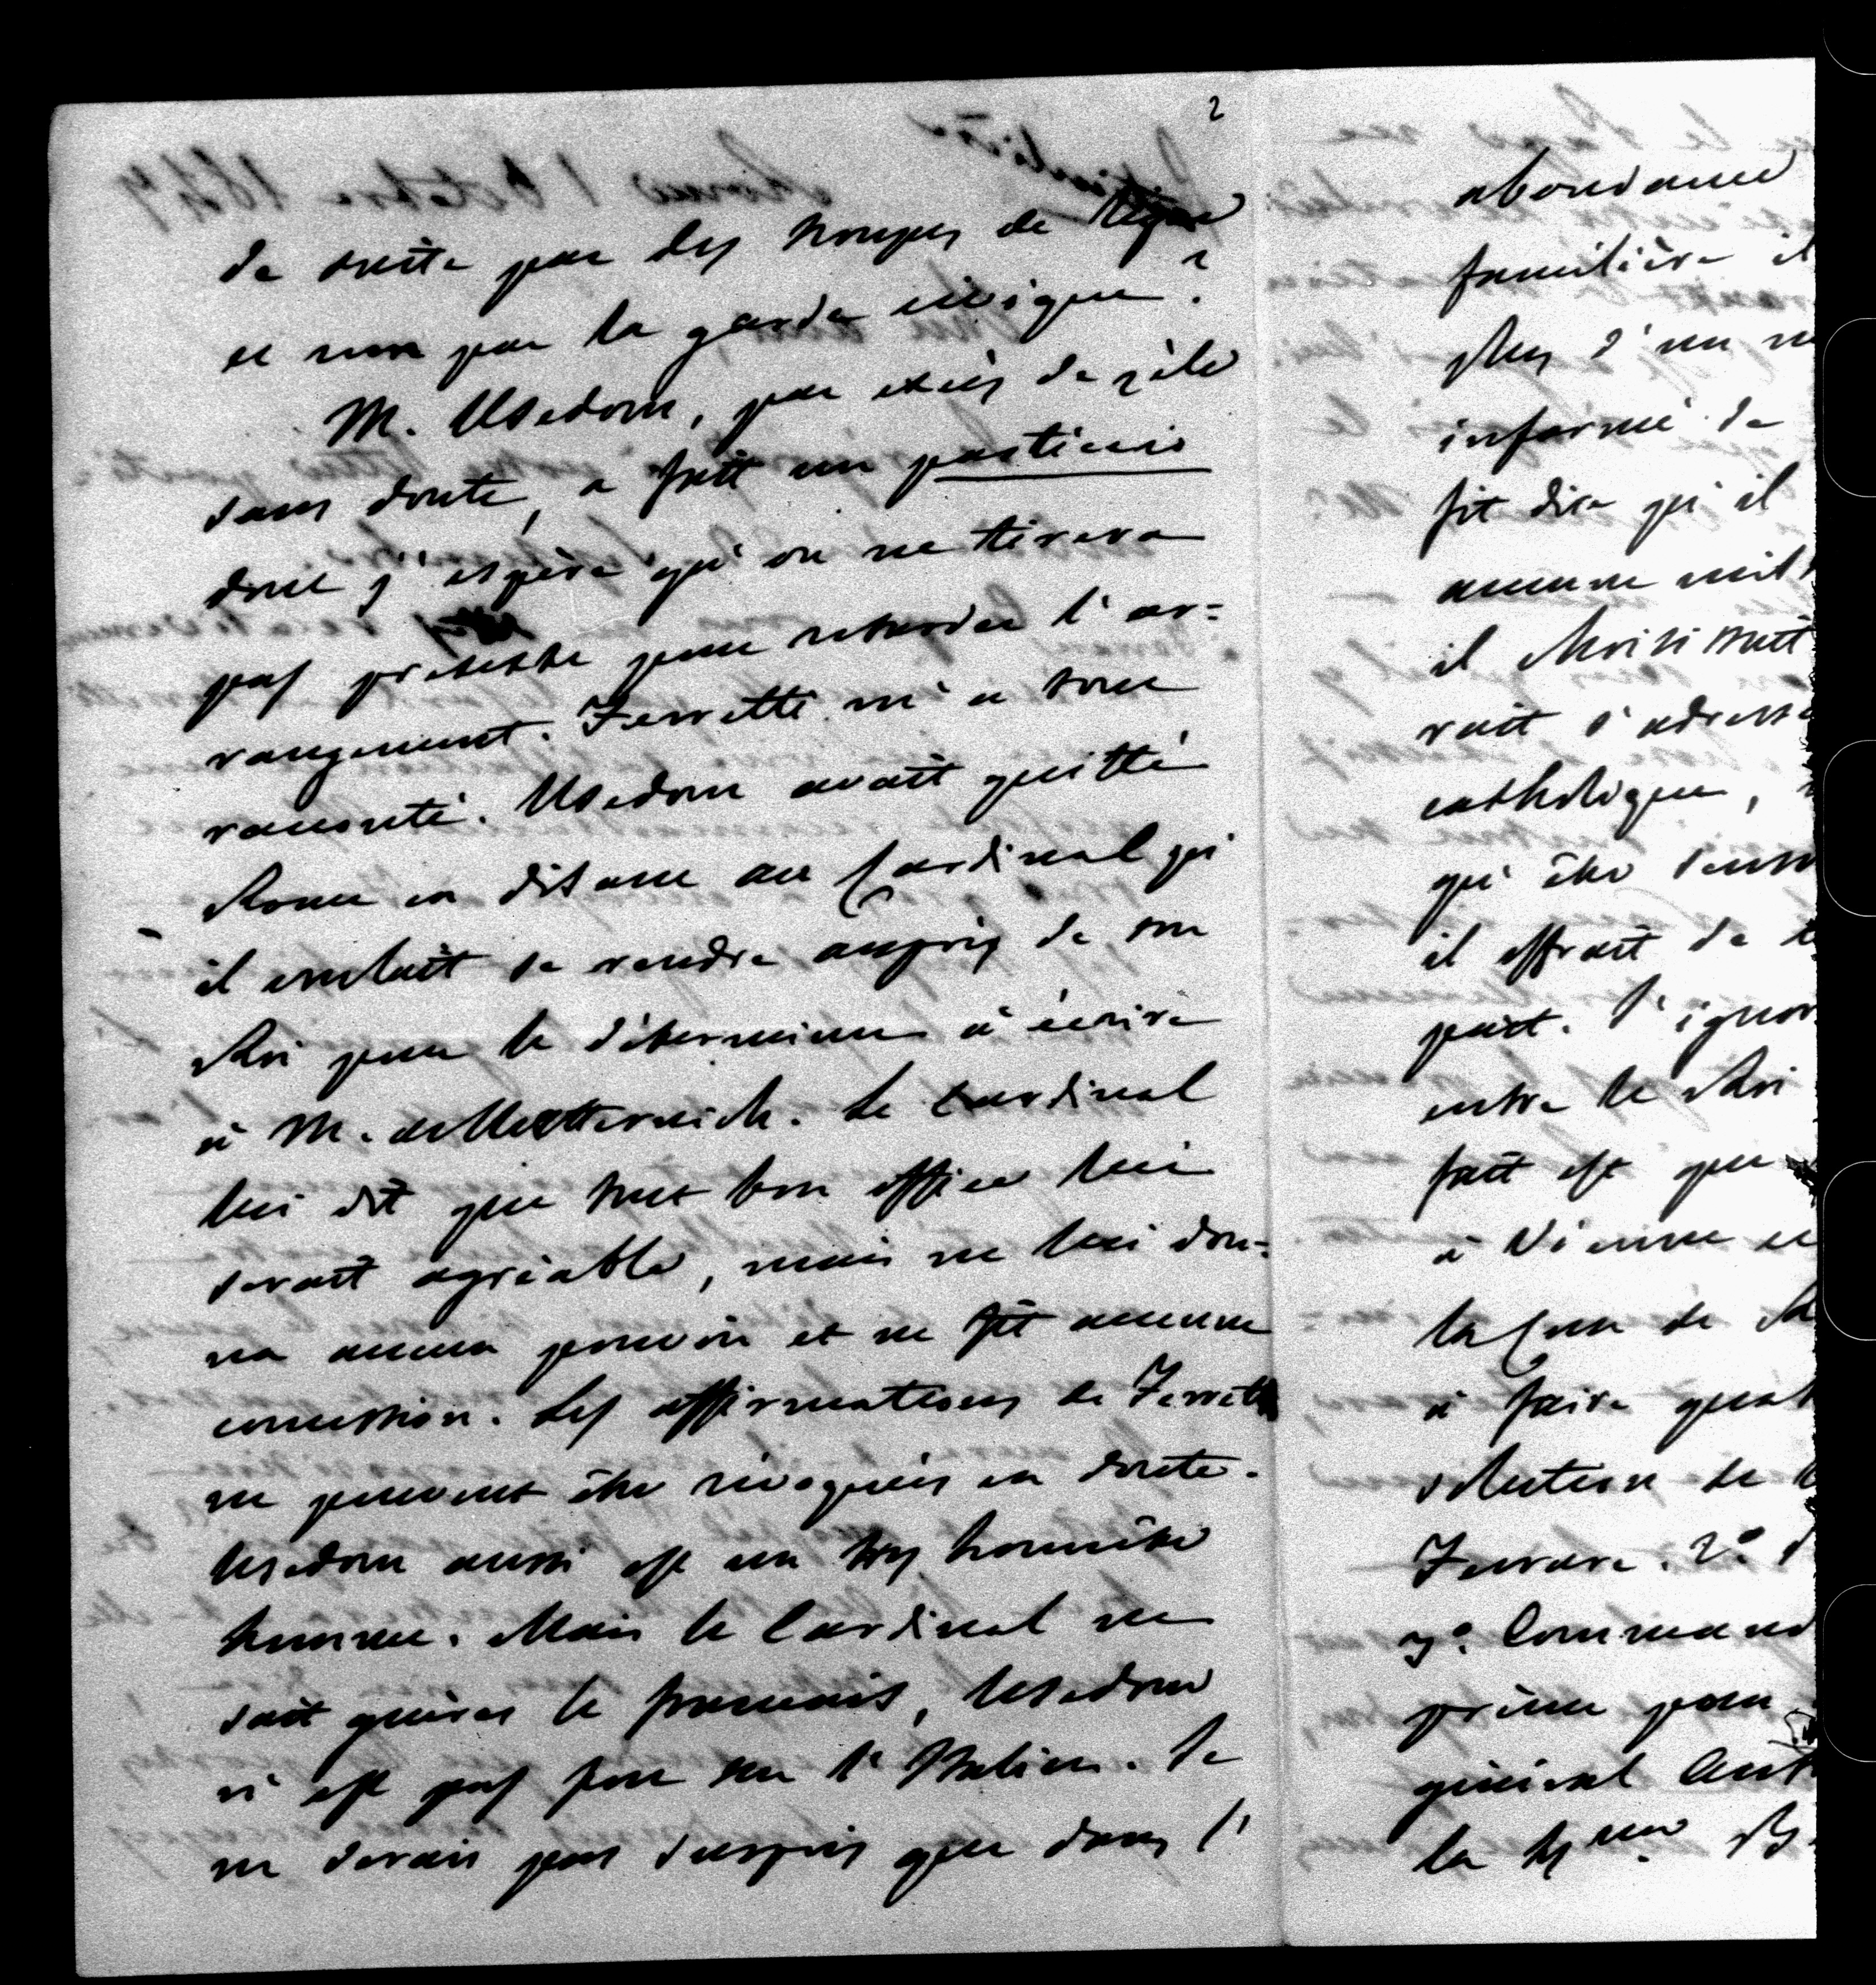 2
de suite par des troupes de ligne
et non par la garde civique?
M. Usedom, par excès de zèle
sans doute, a fait un pasticcio
dont j'espère qu'on ne tirera
pas prétexte pour retarder l'ar=
rangement. Ferretti m'a tout
raconté. Usedom avait quitté
Rome en disant au Cardinal qu'
il voulait se rendre auprès de son
Roi pour le déterminer à écrire
à M. de Metternich. Le Cardinal
lui dit que tout bon office lui
serait agréable, mais ne lui don=
na aucun pouvoir et ne fit aucune
concession. Les affirmations de Ferretti
ne peuvent être révoquées en doute.
Usedom aussi est un très honnête
homme. Mais le Cardinal ne
sait guères le français, Usedom
n'est pas fort sur l'Italien. Je
ne serais pas surpris que dans l'
abondance
familière il
plus d'un
informé de
fit dire qu'il
aucune
il
rait s'adresse
catholique,
qu'être
il offrait de
part. J'ignor
entre le Roi
fait est que
à Vienne et
la Cour de
à faire
solution de
Ferrare. 2°
3°. Command
prince pour
général
la